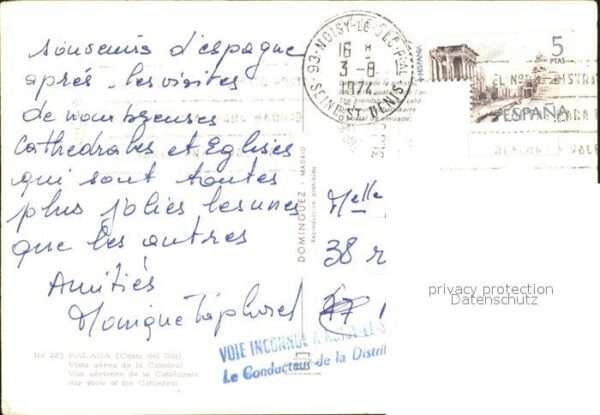 souvenirs d'espagne
après les visites
de nombreuses
Cathédrales et Eglises
qui sont toutes
plus jolies les unes
que les autres
Amitiés
Monique
Nº 223 MALAGA (Costa del Sol)
Vista aérea de la Catedral
Vue aérienne de la Cathédrale
Air view of the Cathedral
DOMINGUEZ - MADRID
Reproducción prohibida
93-NOISY-LE-SEC PAL
16 H
3-8
1974
SEINE ST DENIS
HISPANIA
5
PTAS
ESPAÑA
Melle
38 r
VOIE INCONNUE A NOISY-LE-S
Le Conducteur de la Distri
privacy protection
Datenschutz